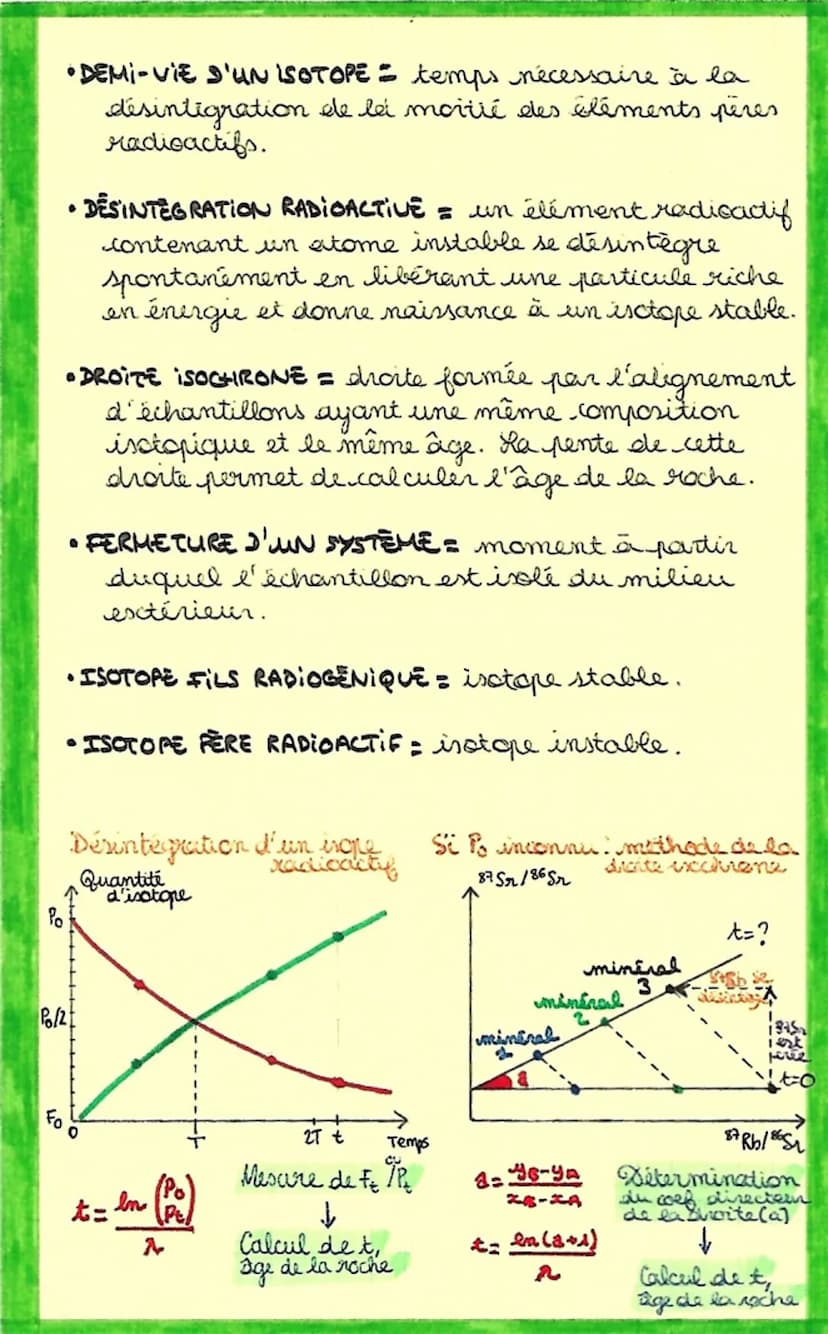 • DEMI-VIE D'UN ISOTOPE = temps nécessaire à la
désintégration de la moitié des éléments pères
radioactifs.
• DÉSINTÉGRATION RADIOACTIVE = un élément radioactif
contenant un atome instable se désintègre
spontanément en libérant une particule riche
en énergie et donne naissance à un isotope stable.
• DROITE ISOCHRONE = droite formée par l'alignement
d'échantillons ayant une même composition
isotopique et le même âge. La pente de cette
droite permet de calculer l'âge de la roche.
• FERMETURE D'UN SYSTÈME = moment à partir
duquel l'échantillon est isolé du milieu
extérieur.
• ISOTOPE FILS RADIOGÉNIQUE = isotope stable.
• ISOTOPE PÈRE RADIOACTIF = isotope instable.
Désintégration d'un isope
radioactif
Quantité
d'isotope
P0
P0/2
F0
0
T
2T t
Temps
t = ln (P0/Pt) / λ
Mesure de Ft ou Pt
↓
Calcul de t,
âge de la roche
Si P0 inconnu : méthode de la
droite isochrone
87Sr/86Sr
t=?
minéral
3
87Rb se
désintègre
minéral
2
minéral
1
87Sr
est
créé
a
t=0
87Rb/86Sr
a = yB-yA / xB-xA
Détermination
du coef directeur
de la droite (a)
↓
t = ln(a+1) / λ
Calcul de t,
âge de la roche